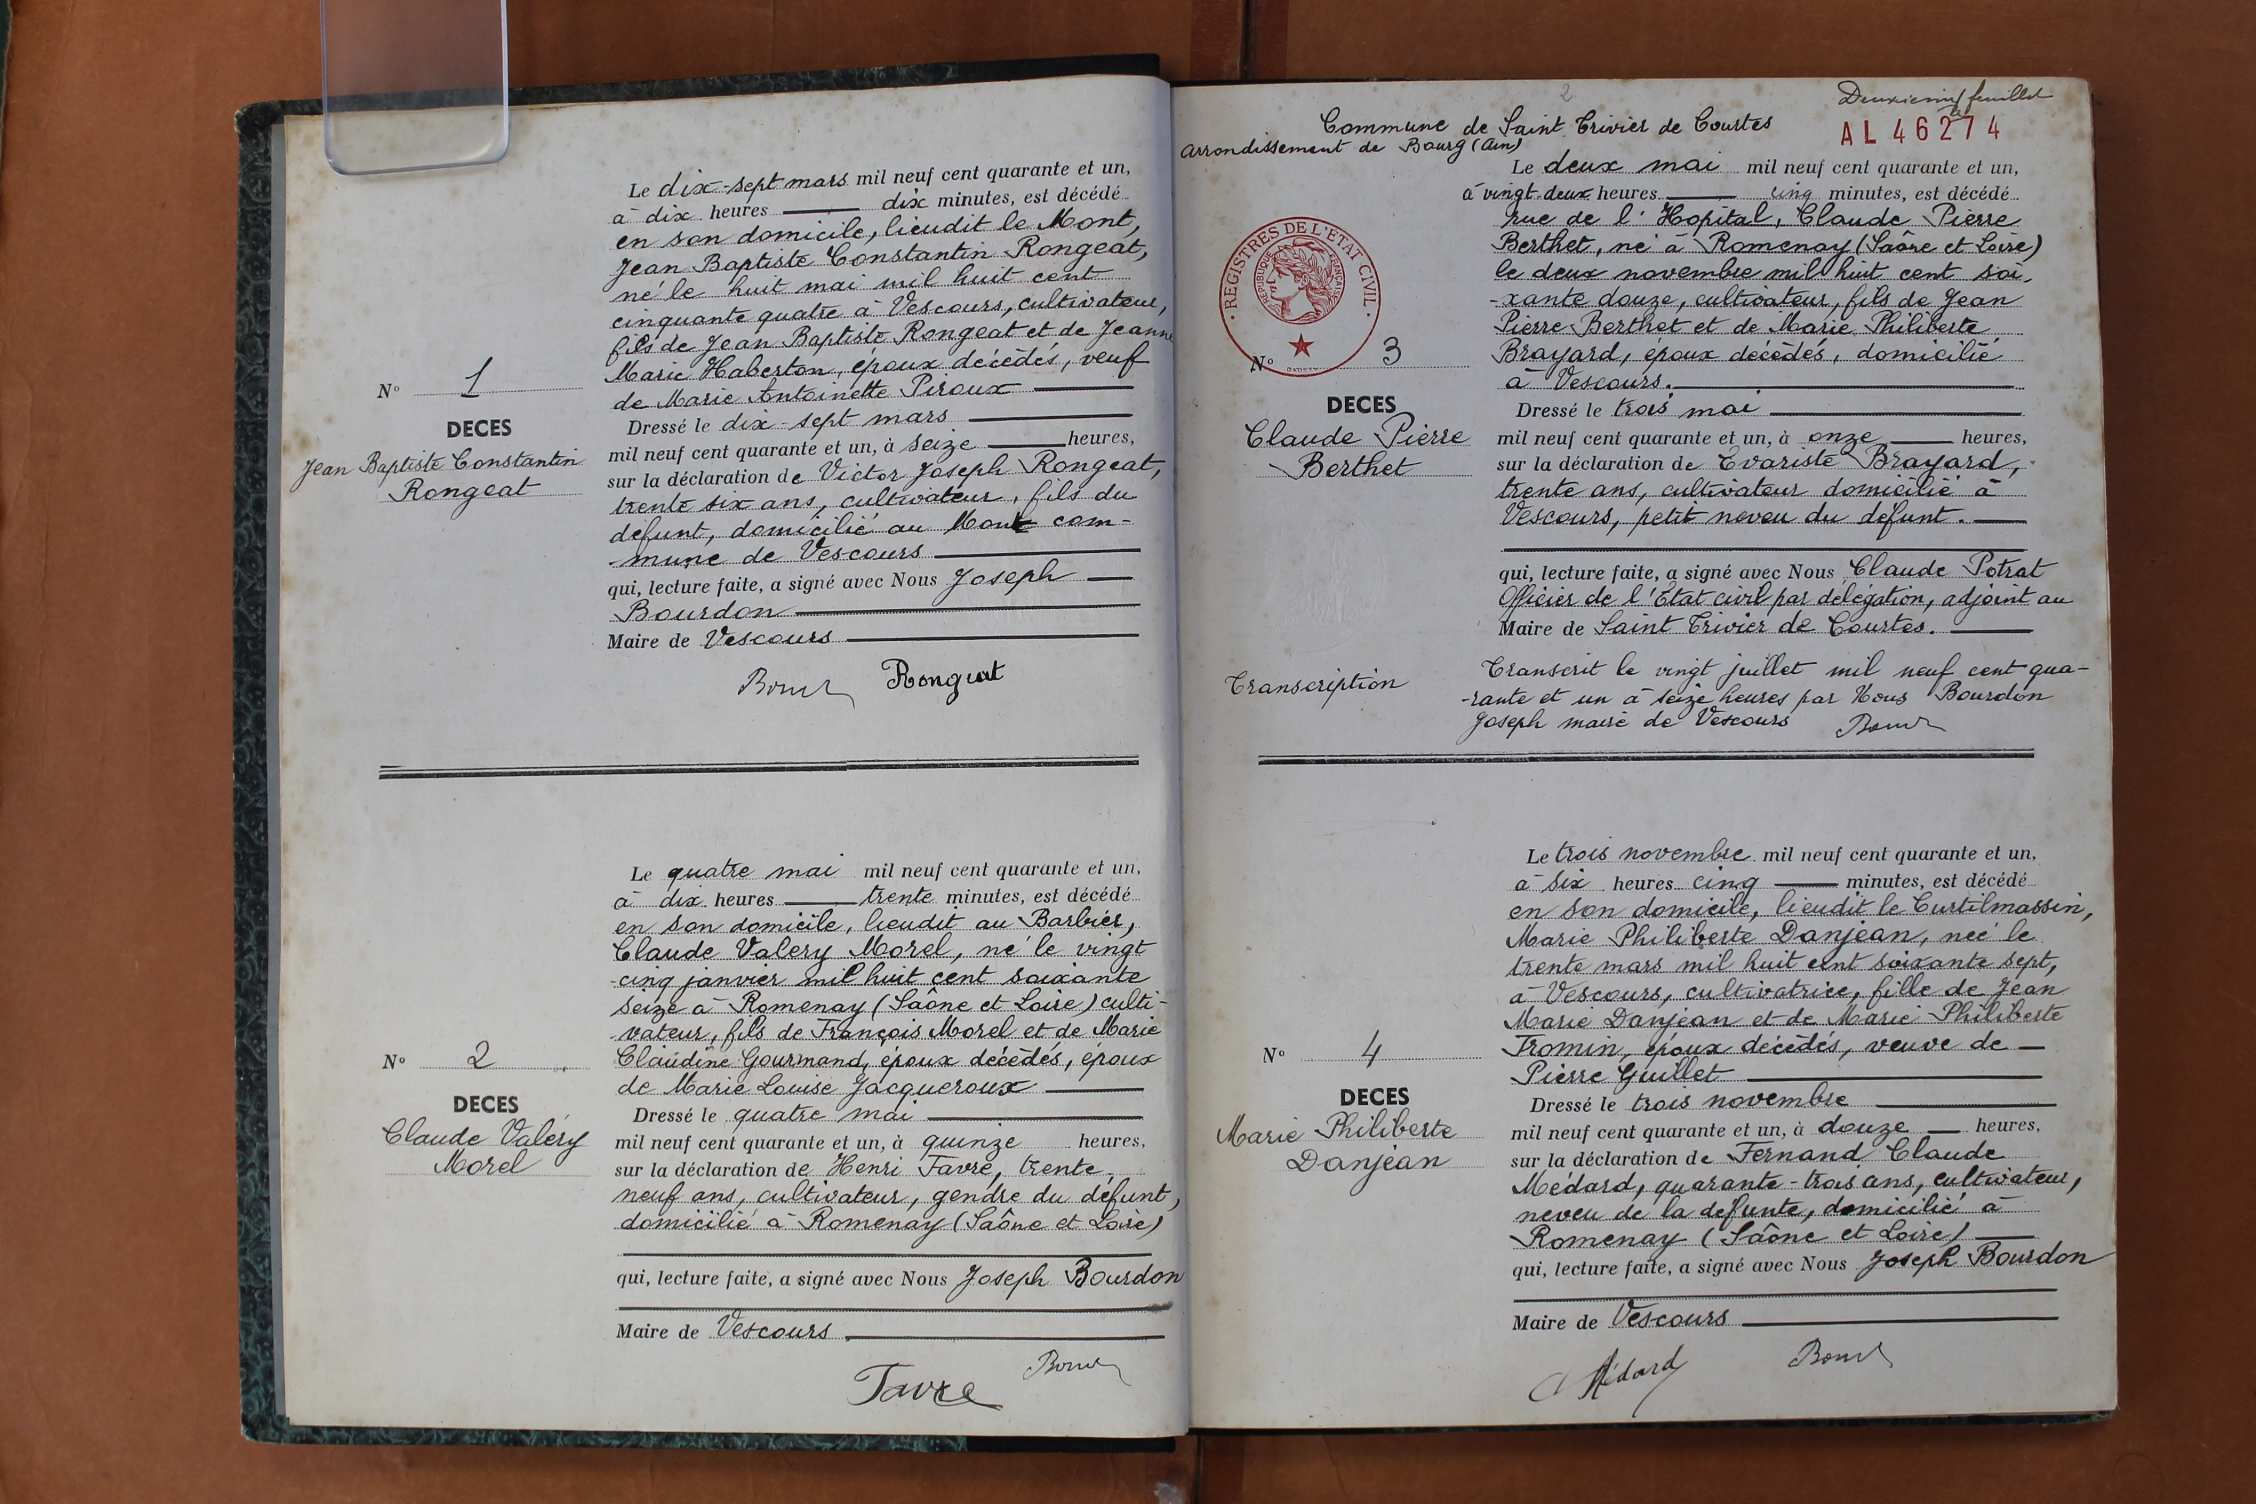 Le dix-sept mars mil neuf cent quarante et un,
à dix heures dix minutes, est décédé
en son domicile, lieudit le Mont,
Jean Baptiste Constantin Rongeat,
né le huit mai mil huit cent
cinquante quatre à Vescours, cultivateur,
fils de Jean Baptiste Rongeat et de Jeanne
Marie Haberton, époux décédés, veuf
de Marie Antoinette Piroux
N° 1
DECES
Jean Baptiste Constantin
Rongeat
Dressé le dix-sept mars
mil neuf cent quarante et un, à seize heures,
sur la déclaration de Victor Joseph Rongeat,
trente six ans, cultivateur, fils du
défunt, domicilié au Mont com-
mune de Vescours
qui, lecture faite, a signé avec Nous Joseph
Bourdon
Maire de Vescours
Rongeat
Le quatre mai mil neuf cent quarante et un,
à dix heures trente minutes, est décédé
en son domicile, lieudit au Barbier,
Claude Valery Morel, né le vingt
-cinq janvier mil huit cent soixante
seize à Romenay (Saône et Loire) culti-
vateur, fils de François Morel et de Marie
Claudine Gourmand, époux décédés, époux
de Marie Louise Jacqueroux
N° 2
DECES
Claude Valéry
Morel
Dressé le quatre mai
mil neuf cent quarante et un, à quinze heures,
sur la déclaration de Henri Favre, trente
neuf ans, cultivateur, gendre du défunt,
domicilié à Romenay (Saône et Loire)
qui, lecture faite, a signé avec Nous Joseph Bourdon
Maire de Vescours
Favre
2
Deuxième feuillet
AL 46274
Commune de Saint Trivier de Courtes
Arrondissement de Bourg (Ain)
Le deux mai mil neuf cent quarante et un,
à vingt-deux heures cinq minutes, est décédé
rue de l'Hopital, Claude Pierre
Berthet, né à Romenay (Saône et Loire)
le deux novembre mil huit cent soi-
-xante douze, cultivateur, fils de Jean
Pierre Berthet et de Marie Philiberte
Brayard, époux décédés, domicilié
à Vescours.
REGISTRES DE L'ETAT CIVIL
REPUBLIQUE FRANÇAISE
N° 3
DECES
Claude Pierre
Berthet
Dressé le trois mai
mil neuf cent quarante et un, à onze heures,
sur la déclaration de Evariste Brayard,
trente ans, cultivateur domicilié à
Vescours, petit neveu du défunt.
qui, lecture faite, a signé avec Nous Claude Potrat
Officier de l'Etat civil par délégation, adjoint au
Maire de Saint Trivier de Courtes.
Transcription
Transcrit le vingt juillet mil neuf cent qua-
-rante et un à seize heures par Nous Bourdon
Joseph maire de Vescours
Le trois novembre mil neuf cent quarante et un,
à six heures cinq minutes, est décédé
en son domicile, lieudit le Curtilmassin,
Marie Philiberte Danjean, née le
trente mars mil huit cent soixante sept,
à Vescours, cultivatrice, fille de Jean
Marie Danjean et de Marie Philiberte
Fromin, époux décédés, veuve de
Pierre Guillet
N° 4
DECES
Marie Philiberte
Danjean
Dressé le trois novembre
mil neuf cent quarante et un, à douze heures,
sur la déclaration de Fernand Claude
Médard, quarante-trois ans, cultivateur,
neveu de la défunte, domicilié à
Romenay (Saône et Loire)
qui, lecture faite, a signé avec Nous Joseph Bourdon
Maire de Vescours
Médard